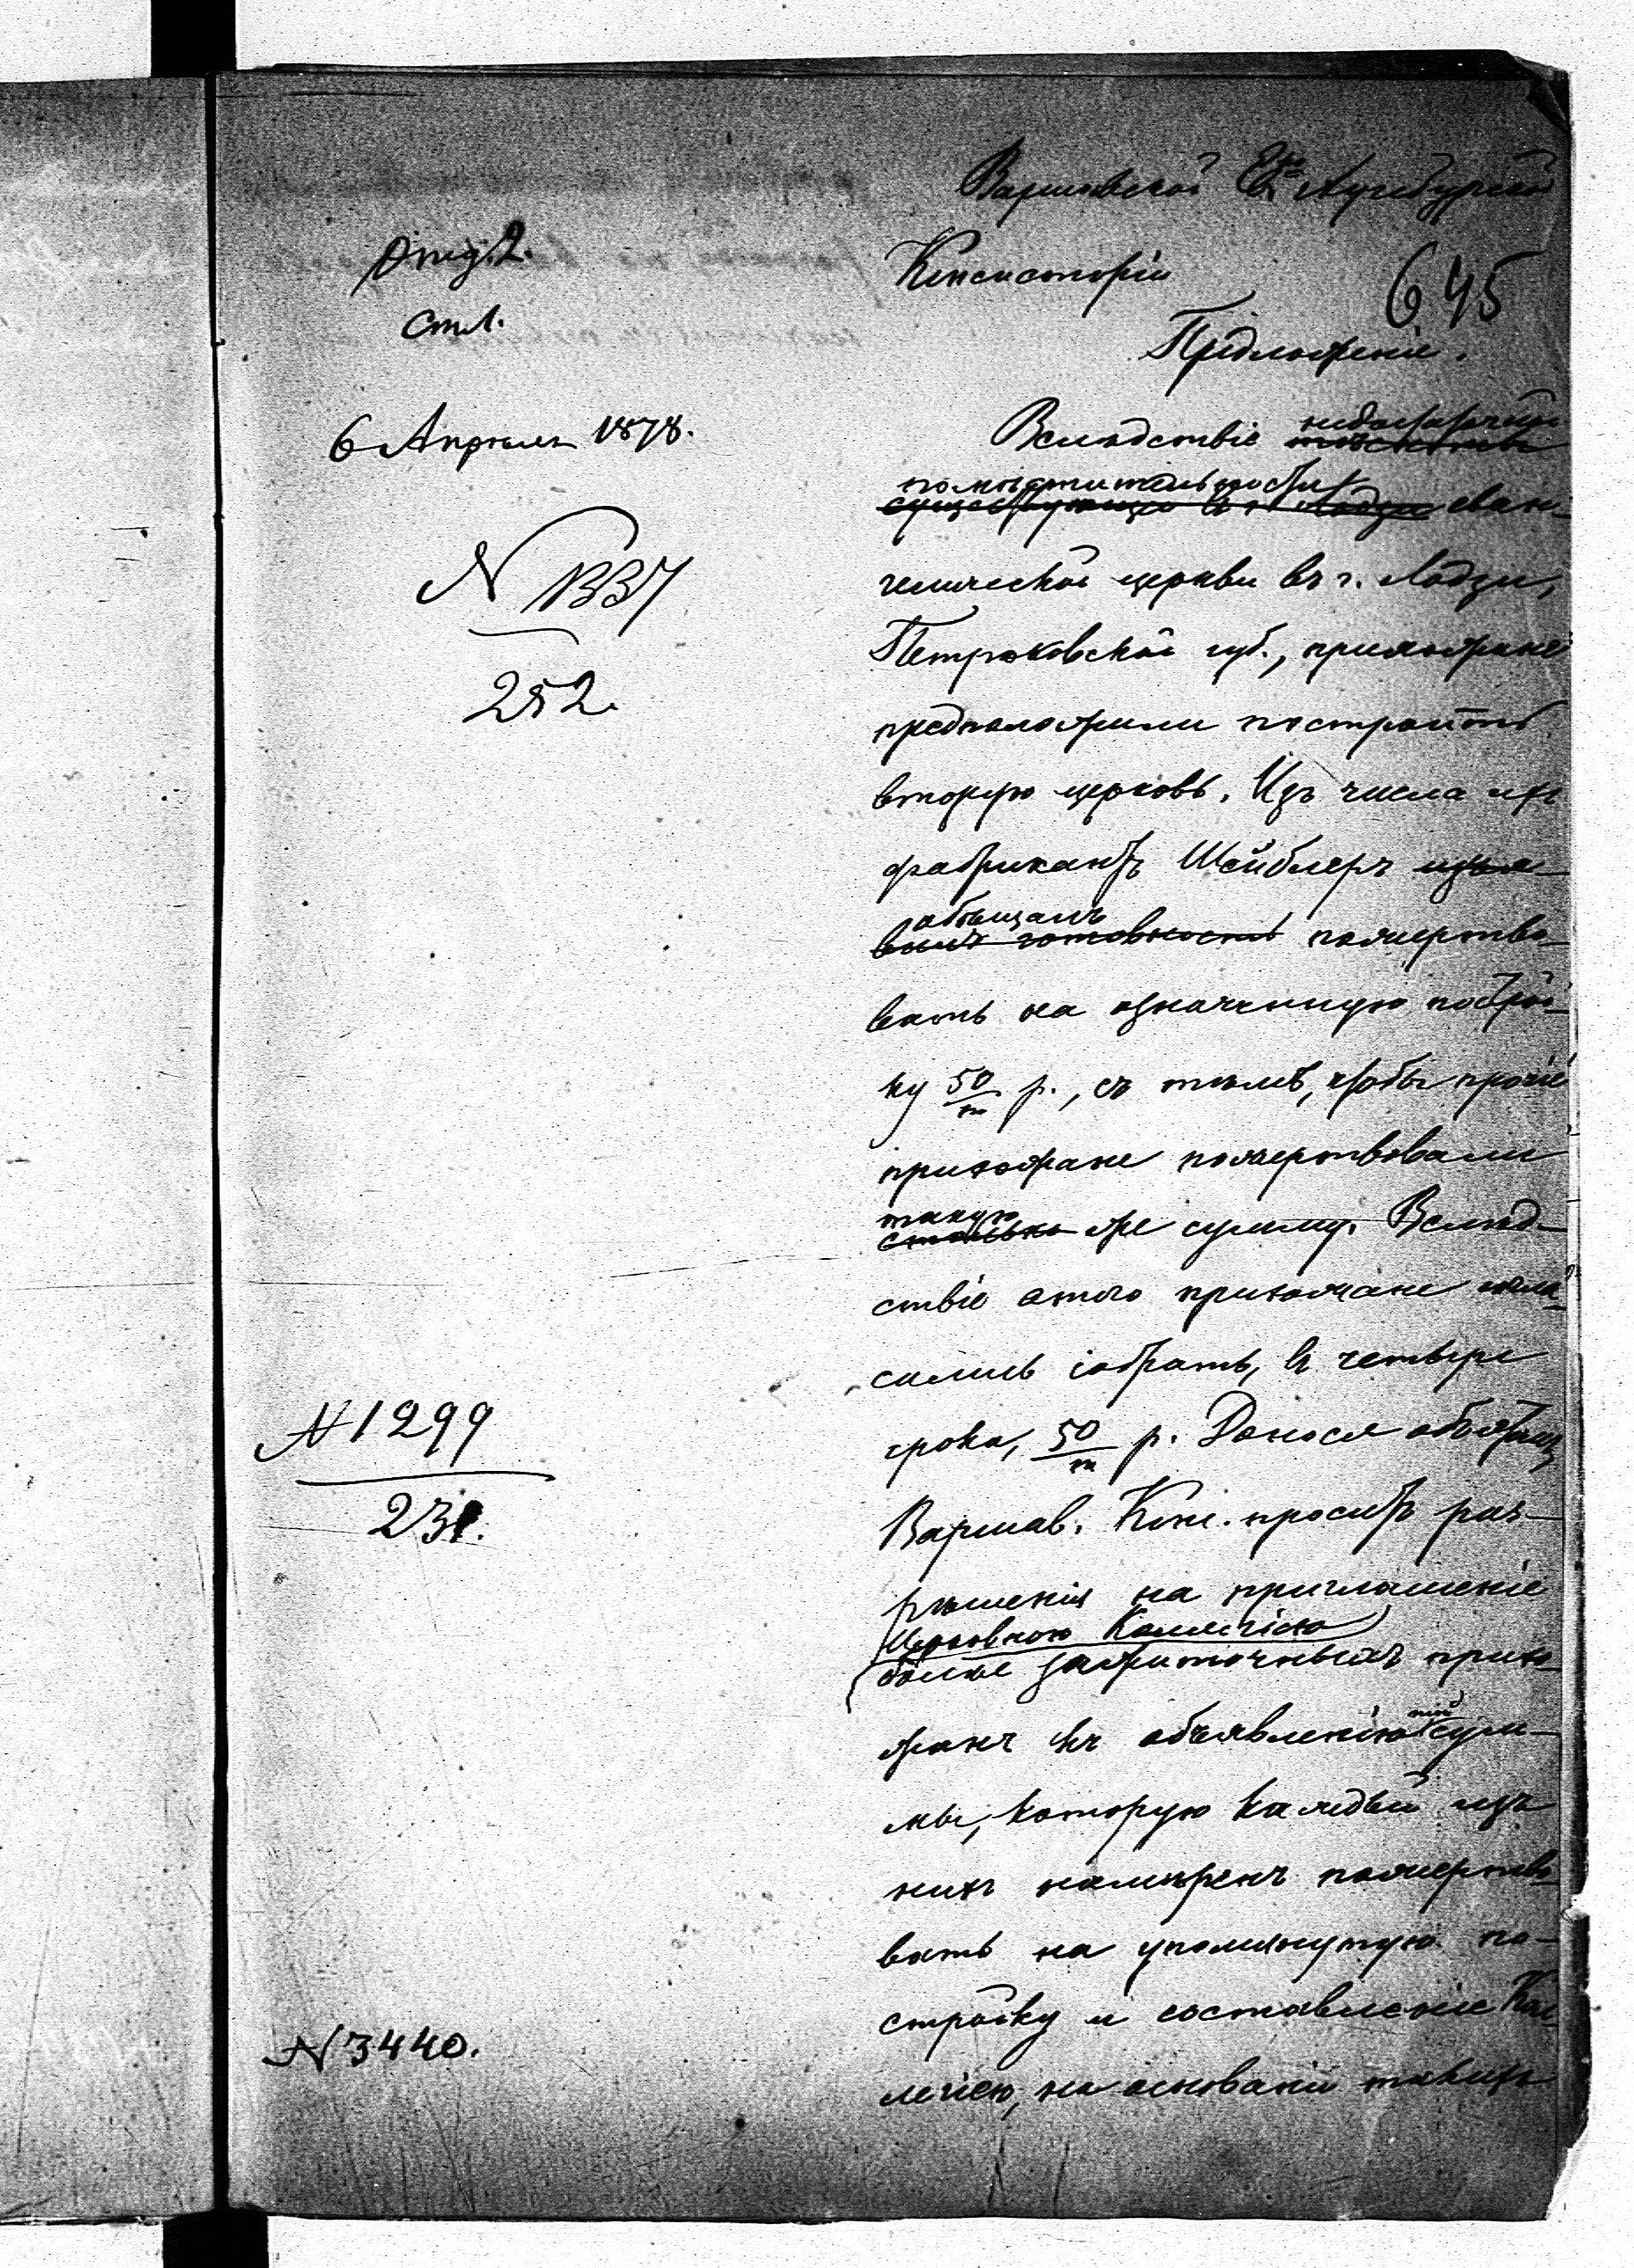 Варшавской Ев. Аугсбургской
Консисторіи
645
Предложеніе.
Отд. 2.
Ст. 1.
6 Апрѣля 1878.
N 1337
252.
N 1299
231.
N 3440.
Вслѣдствіе недостаточной
помѣстительности еван-
гелической церкви въ г. Лодзи,
Петроковской губ., прихожане
предположили построить
вторую церковь. Изъ числа ихъ
фабрикантъ Шейблеръ изъя-
обѣщалъ
вилъ готовность пожертво-
вать на означенную построй-
ку 50/т р., съ тѣмъ, чтобы прочіе
прихожане пожертвовали
такую
столько же сумму. Вслѣд-
ствіе этого прихожане согла-
сились собрать, въ четыре
срока, 50/т р. Донося объ этомъ,
Варшав. Конс. проситъ раз-
рѣшенія на приглашеніе
Церковною Коллегіею
болѣе зажиточныхъ прихо-
жанъ къ объявленію той сум-
мы, которую каждый изъ
нихъ намѣренъ пожертво-
вать на упомянутую по-
стройку и составленіе Кол-
легіею, на основаніи такихъ